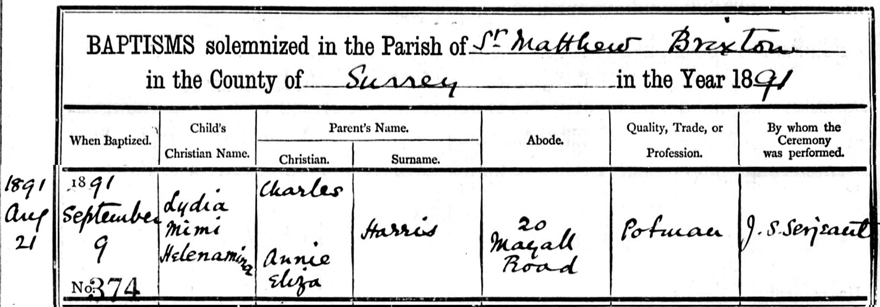 BAPTISMS solemnized in the Parish of St Matthew Brixton
in the County of Surrey in the Year 1891
When Baptized.
Child's
Christian Name.
Parent's Name.
Christian.
Surname.
Abode.
Quality, Trade, or
Profession.
By whom the
Ceremony
was performed.
1891
Aug
21
1891
September
9
No. 374
Lydia
Mimi
Helenamina
Charles
Annie
Eliza
Harris
20
Mayall
Road
Potman
J. S. Serjeant